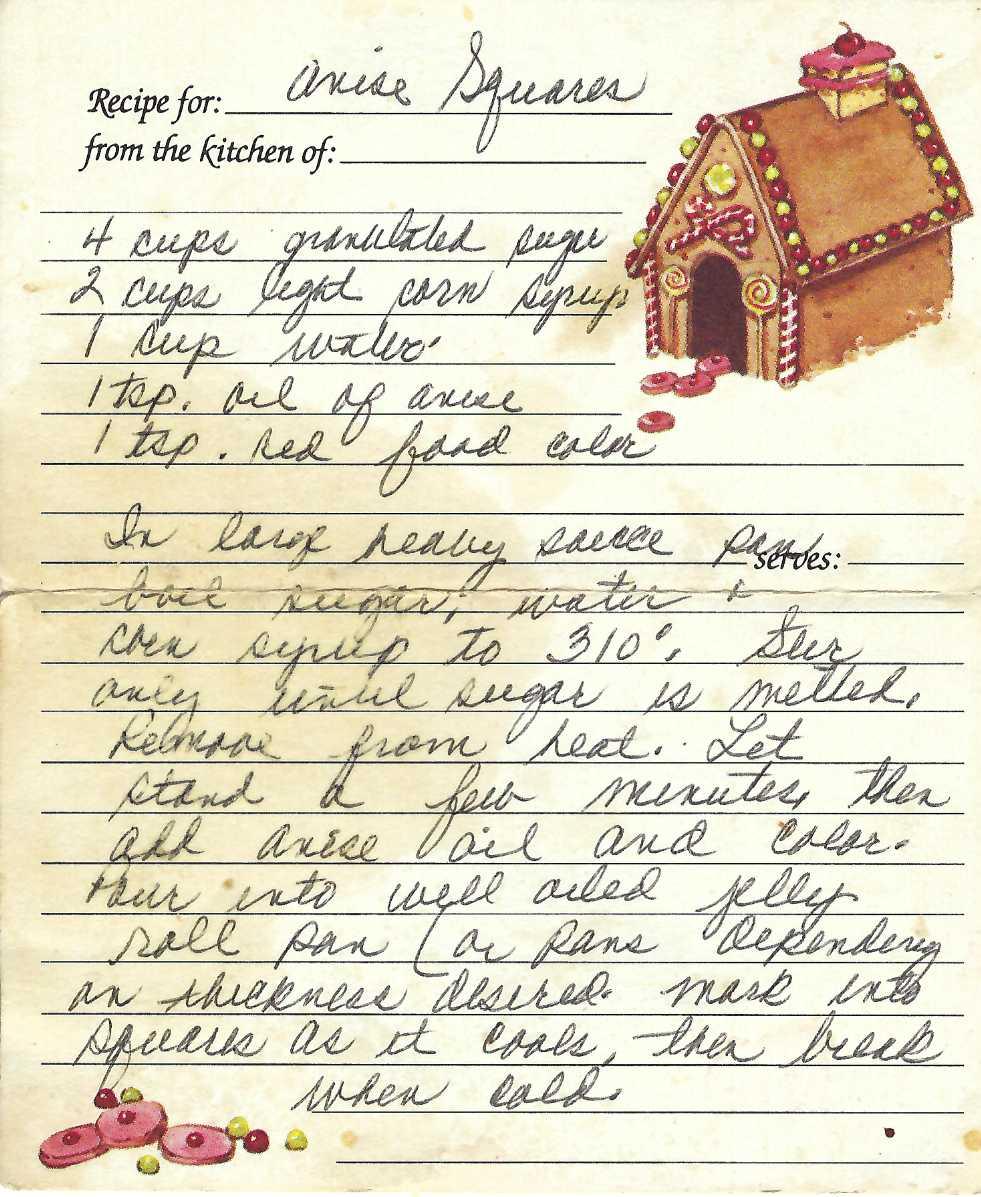 Recipe for: Anise Squares
from the kitchen of:
4 cups granulated sugar
2 cups light corn syrup
1 cup water.
1 tsp. oil of anise
1 tsp. red food color
In large heavy sauce pan
serves:
boil sugar, water &
corn syrup to 310°. Stir
only until sugar is melted.
Remove from heat. Let
stand a few minutes, then
add anise oil and color.
Pour into well oiled jelly
roll pan (or pans depending
on thickness desired. mark into
squares as it cools, then break
when cold.